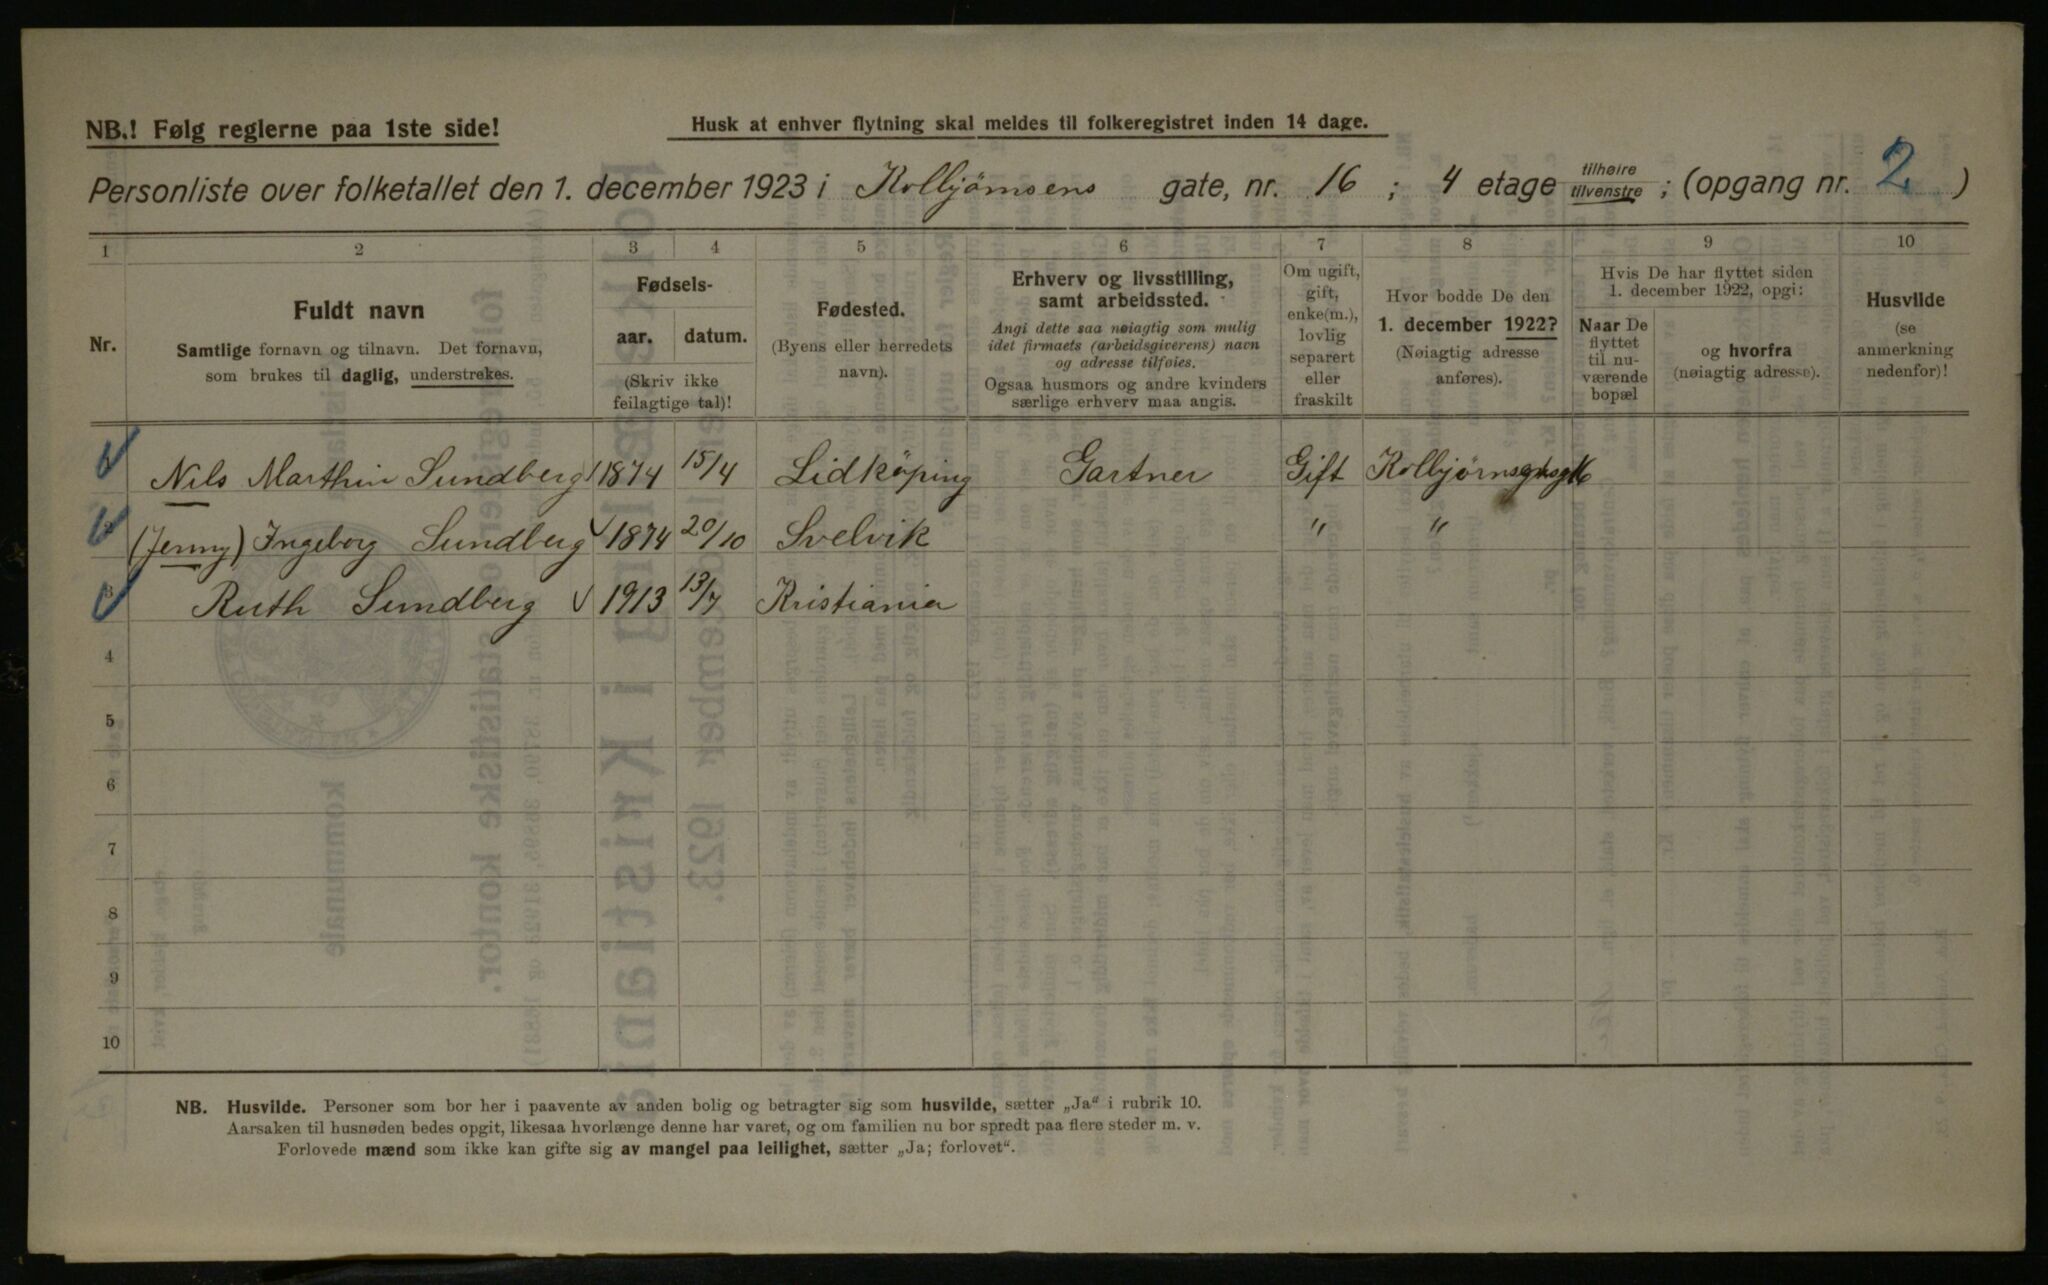 NB.! Følg reglerne paa 1ste side!
Husk at enhver flytning skal meldes til folkeregistret inden 14 dage.
Personliste over folketallet den 1. december 1923 i Kolbjørnsens gate, nr. 16 ; 4 etage tilhøire tilvenstre ; (opgang nr. 2 )
1 2 3 4 5 6 7 8 9 10
Nr.
Fuldt navn
Samtlige fornavn og tilnavn. Det fornavn,
som brukes til daglig, understrekes.
Fødsels-
aar. datum.
(Skriv ikke
feilagtige tal)!
Fødested.
(Byens eller herredets
navn).
Erhverv og livsstilling,
samt arbeidssted.
Angi dette saa nøiagtig som mulig
idet firmaets (arbeidsgiverens) navn
og adresse tilføies.
Ogsaa husmors og andre kvinders
særlige erhverv maa angis.
Om ugift,
gift,
enke(m.),
lovlig
separert
eller
fraskilt
Hvor bodde De den
1. december 1922?
(Nøiagtig adresse
anføres).
Hvis De har flyttet siden
1. december 1922, opgi:
Naar De
flyttet
til nu-
værende
bopæl
og hvorfra
(nøiagtig adresse).
Husvilde
(se
anmerkning
nedenfor)!
Nils Marthin Sundberg 1874 15/4 Lidköping Gartner Gift Kolbjørnsens 16
2 (Jenny) Ingeborg Sundberg 1874 20/10 Svelvik " "
3 Ruth Sundberg 1913 13/7 Kristiania
4
5
6
7
8
9
10
NB. Husvilde. Personer som bor her i paavente av anden bolig og betragter sig som husvilde, sætter „Ja“ i rubrik 10.
Aarsaken til husnøden bedes opgit, likesaa hvorlænge denne har varet, og om familien nu bor spredt paa flere steder m. v.
Forlovede mænd som ikke kan gifte sig av mangel paa leilighet, sætter „Ja; forlovet“.